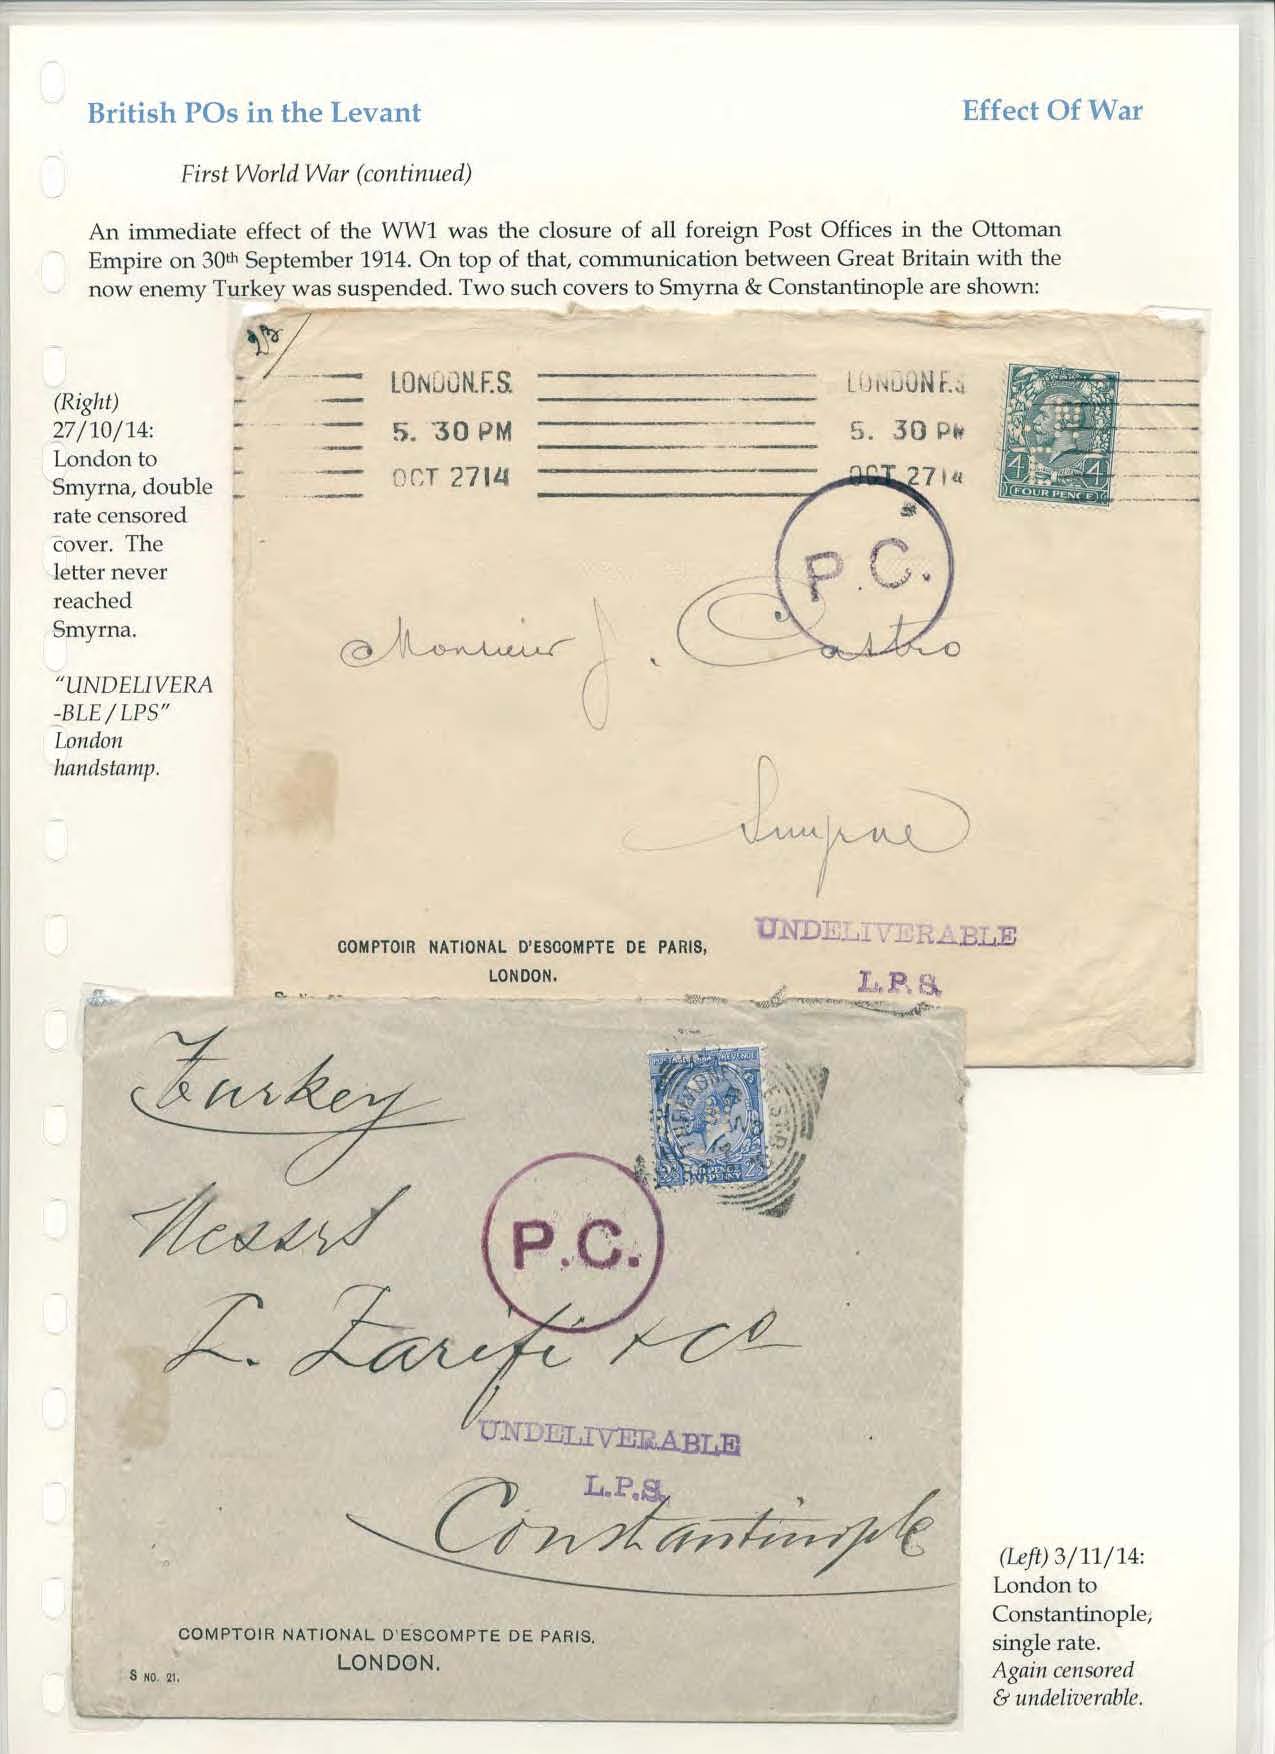 British POs in the Levant
Effect Of War
First World War (continued)
An immediate effect of the WW1 was the closure of all foreign Post Offices in the Ottoman
Empire on 30th September 1914. On top of that, communication between Great Britain with the
now enemy Turkey was suspended. Two such covers to Smyrna & Constantinople are shown:
(Right)
27/10/14:
London to
Smyrna, double
rate censored
cover. The
letter never
reached
Smyrna.
"UNDELIVERA
-BLE / LPS"
London
handstamp.
LONDON.F.S.
5. 30 PM
OCT 27 14
LONDON F.S
5. 30 PM
OCT 27 14
4 4
FOUR PENCE
P.C.
Monsieur J. Castro
Smyrne
COMPTOIR NATIONAL D'ESCOMPTE DE PARIS,
LONDON.
UNDELIVERABLE
L.P.S.
Turkey
POSTAGE REVENUE
P.C.
Messrs
L. Zarifi & Co
UNDELIVERABLE
L.P.S.
Constantinople
COMPTOIR NATIONAL D'ESCOMPTE DE PARIS.
LONDON.
S NO. 21.
(Left) 3/11/14:
London to
Constantinople,
single rate.
Again censored
& undeliverable.